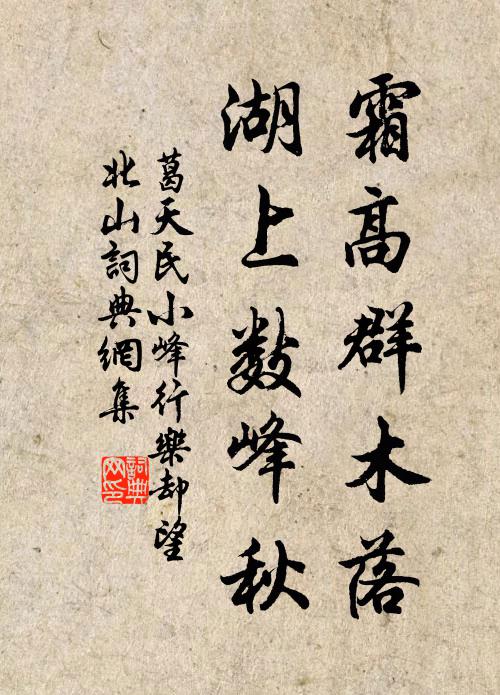 霜高群木落
湖上数峰秋
葛天民小峰行樂却望
北山詞典網集
詞典网印